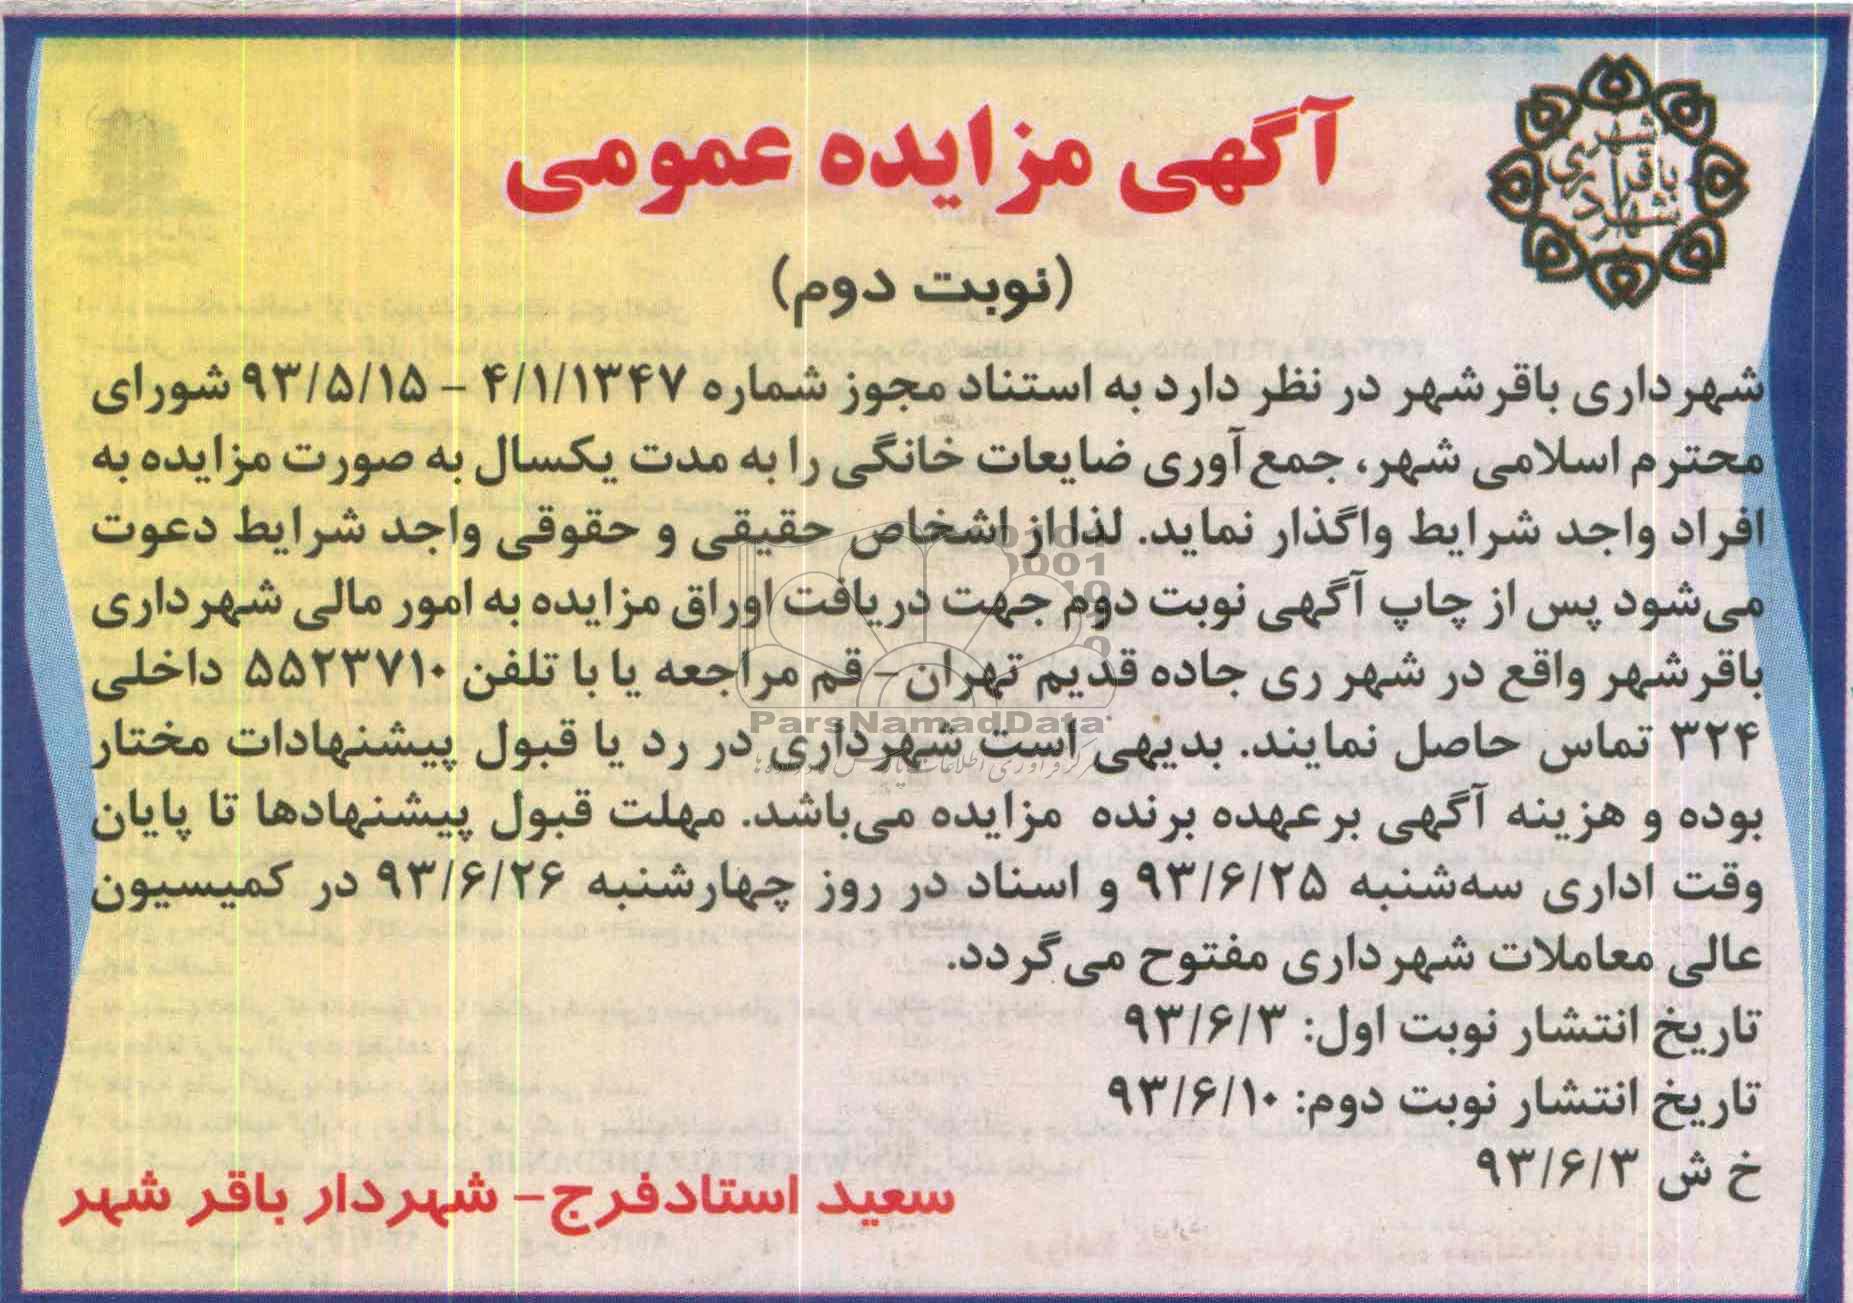 شهرداری
باقرشهر
آگهی مزایده عمومی
(نوبت دوم)
شهرداری باقرشهر در نظر دارد به استناد مجوز شماره ۴/۱/۱۳۴۷ – ۹۳/۵/۱۵ شورای
محترم اسلامی شهر، جمع‌آوری ضایعات خانگی را به مدت یکسال به صورت مزایده به
افراد واجد شرایط واگذار نماید. لذا از اشخاص حقیقی و حقوقی واجد شرایط دعوت
می‌شود پس از چاپ آگهی نوبت دوم جهت دریافت اوراق مزایده به امور مالی شهرداری
باقرشهر واقع در شهر ری جاده قدیم تهران- قم مراجعه یا با تلفن ۵۵۲۳۷۱۰ داخلی
۳۲۴ تماس حاصل نمایند. بدیهی است شهرداری در رد یا قبول پیشنهادات مختار
بوده و هزینه آگهی برعهده برنده مزایده می‌باشد. مهلت قبول پیشنهادها تا پایان
وقت اداری سه‌شنبه ۹۳/۶/۲۵ و اسناد در روز چهارشنبه ۹۳/۶/۲۶ در کمیسیون
عالی معاملات شهرداری مفتوح می‌گردد.
تاریخ انتشار نوبت اول: ۹۳/۶/۳
تاریخ انتشار نوبت دوم: ۹۳/۶/۱۰
خ ش ۹۳/۶/۳
سعید استادفرج- شهردار باقر شهر
ParsNamadData